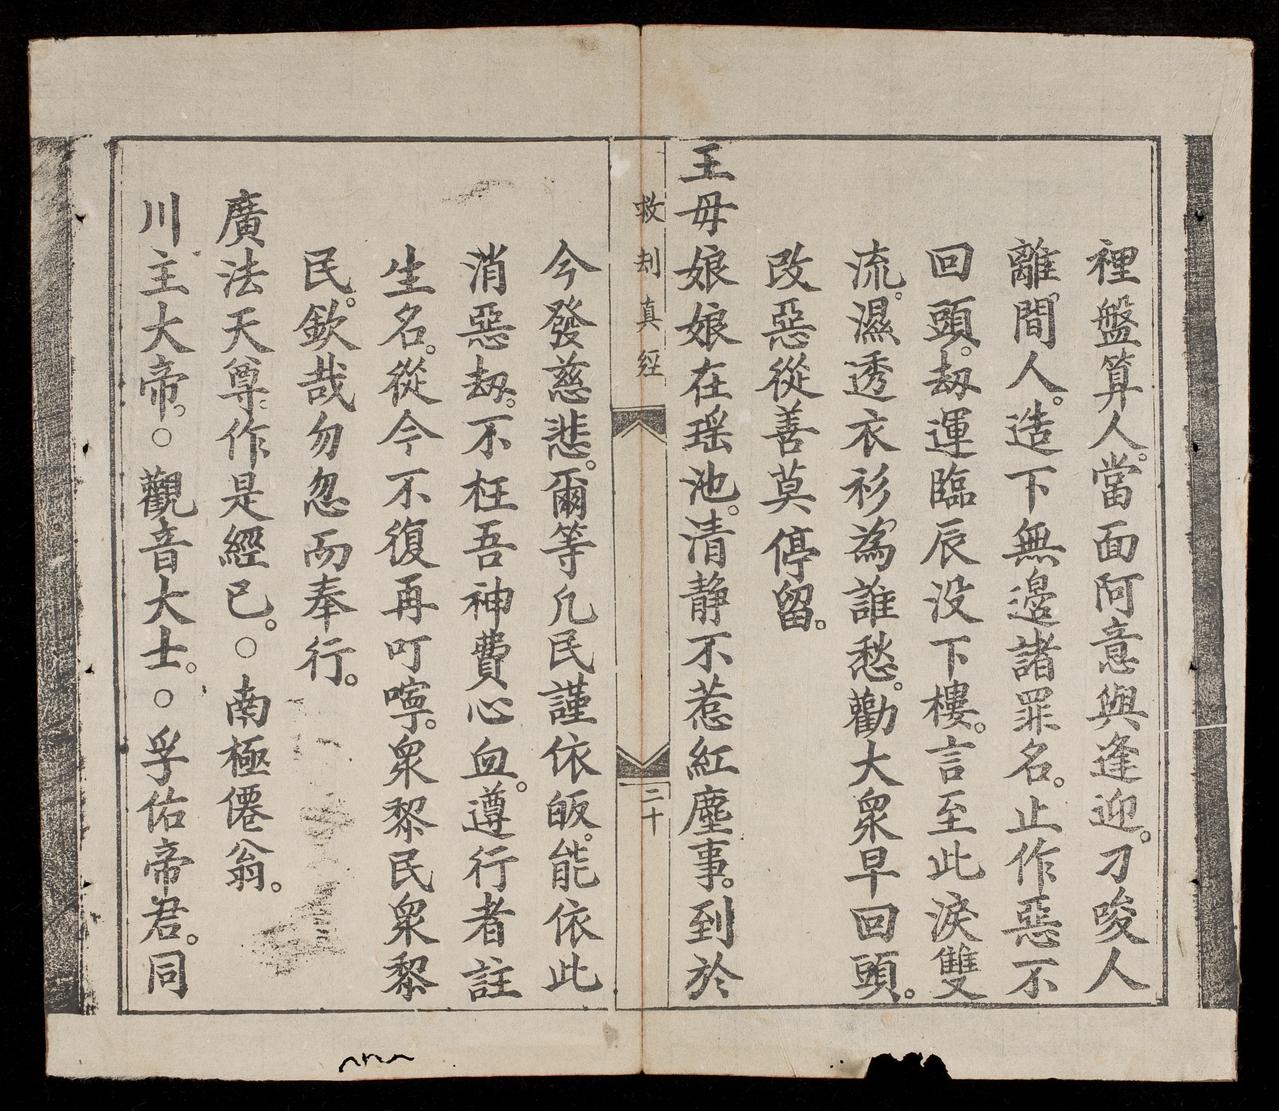 裡盤算人。當面阿意與逢迎。刁唆人
離間人。造下無邊諸罪名。止作惡不
回頭。刼運臨辰没下樓。言至此淚雙
流。濕透衣衫。為誰愁。勸大衆早回頭。
改惡從善莫停留。
王母娘娘在瑶池。清静不惹紅塵事。到於
救刦真經
二十
今發慈悲。爾等凡民謹依皈。能依此
消惡刼。不枉吾神費心血。遵行者註
生名。從今不復再叮嚀。衆黎民衆黎
民。欽哉勿忽而奉行。
廣法天尊。作是經已。○南極僊翁。
川主大帝。○觀音大士。○孚佑帝君。同